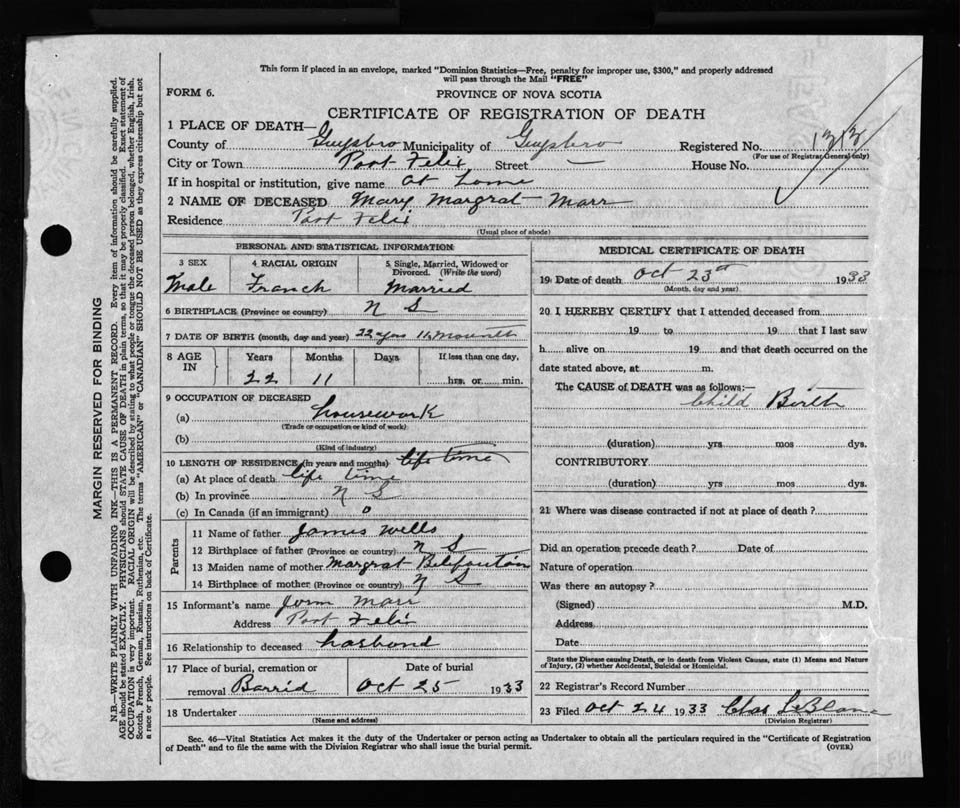 This form if placed in an envelope, marked "Dominion Statistics—Free, penalty for improper use, $300," and properly addressed
will pass through the Mail "FREE"
FORM 6.
PROVINCE OF NOVA SCOTIA
CERTIFICATE OF REGISTRATION OF DEATH
1 PLACE OF DEATH—
County of Guysboro Municipality of Guysboro Registered No. 1313
(For use of Registrar General only)
City or Town Port Felix Street — House No.
If in hospital or institution, give name at home
2 NAME OF DECEASED Mary Margrat Marr
Residence Port Felix
(Usual place of abode)
PERSONAL AND STATISTICAL INFORMATION
3 SEX 4 RACIAL ORIGIN 5 Single, Married, Widowed or Divorced. (Write the word)
Male Franch Married
6 BIRTHPLACE (Province or country) N S
7 DATE OF BIRTH (month, day and year) 22 11
8 AGE IN Years Months Days If less than one day.
22 11 hrs. or min.
9 OCCUPATION OF DECEASED
(a) housework
(Trade or occupation or kind of work)
(b)
(Kind of industry)
10 LENGTH OF RESIDENCE (in years and months) life time
(a) At place of death life time
(b) In province N S
(c) In Canada (if an immigrant) o
Parents
11 Name of father James Wells
12 Birthplace of father (Province or country) N S
13 Maiden name of mother Margrat
14 Birthplace of mother (Province or country) N S
15 Informant's name Marr
Address Port Felix
16 Relationship to deceased hasbond
17 Place of burial, cremation or removal Date of burial
Barrid Oct 25 1933
18 Undertaker
(Name and address)
MEDICAL CERTIFICATE OF DEATH
19 Date of death Oct 23 1933
(Month, day and year)
20 I HEREBY CERTIFY that I attended deceased from
19 to 19 that I last saw
h alive on 19 and that death occurred on the
date stated above, at m.
The CAUSE of DEATH was as follows:—
Child Birth
(duration) yrs mos dys.
CONTRIBUTORY
(duration) yrs mos dys.
21 Where was disease contracted if not at place of death?
Did an operation precede death? Date of
Nature of operation
Was there an autopsy?
(Signed) M.D.
Address
Date
State the Disease causing Death, or in death from Violent Causes, state (1) Means and Nature
of Injury, (2) whether Accidental, Suicidal or Homicidal.
22 Registrar's Record Number
23 Filed Oct 24 1933 Chas LeBlanc
(Division Registrar)
Sec. 46—Vital Statistics Act makes it the duty of the Undertaker or person acting as Undertaker to obtain all the particulars required in the "Certificate of Registration
of Death" and to file the same with the Division Registrar who shall issue the burial permit.
(OVER)
MARGIN RESERVED FOR BINDING
N.B.—WRITE PLAINLY WITH UNFADING INK—THIS IS A PERMANENT RECORD. Every item of information should be carefully supplied.
AGE should be stated EXACTLY. PHYSICIANS should STATE CAUSE OF DEATH in plain terms, so that it may be properly classified. Exact statement of
OCCUPATION is very important. RACIAL ORIGIN will be described by stating to what people or tongue the deceased person belonged, whether English, Irish,
Scotch, French, German, Russian, Ruthenian, etc. The terms "AMERICAN" or "CANADIAN" SHOULD NOT BE USED as they express citizenship but not
a race or people. See instructions on back of Certificate.